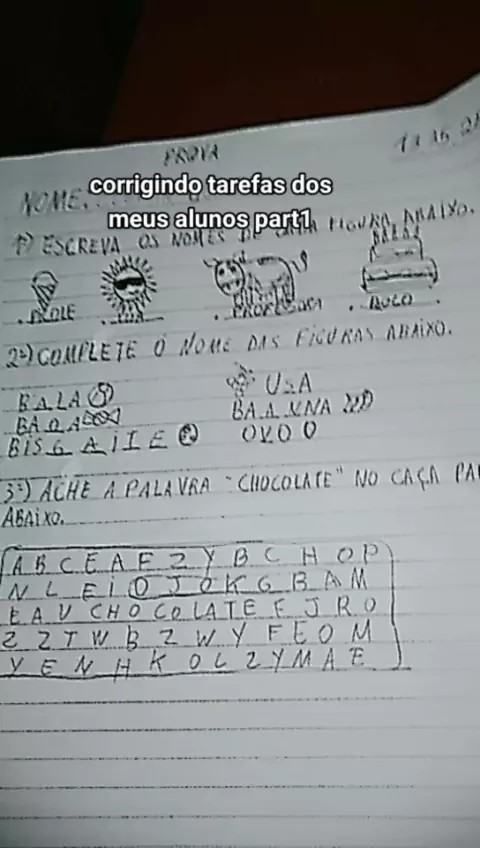 PROVA
NOME
corrigindo tarefas dos
meus alunos part1
1º) ESCREVA OS NOMES DE CADA FIGURA ABAIXO.
PROFESSORA . BOLO .
2º) COMPLETE O NOME DAS FIGURAS ABAIXO.
BALA UVA
BALA BANANA
OVO
3º) ACHE A PALAVRA "CHOCOLATE" NO CAÇA PA
ABAIXO.
A B C E A F Z Y B C H O P
N L E I O J O K G B A M
E A V C H O C O L A T E E J R O
Z Z T W B Z W Y F E O M
Y E N H K O L Z Y M A E